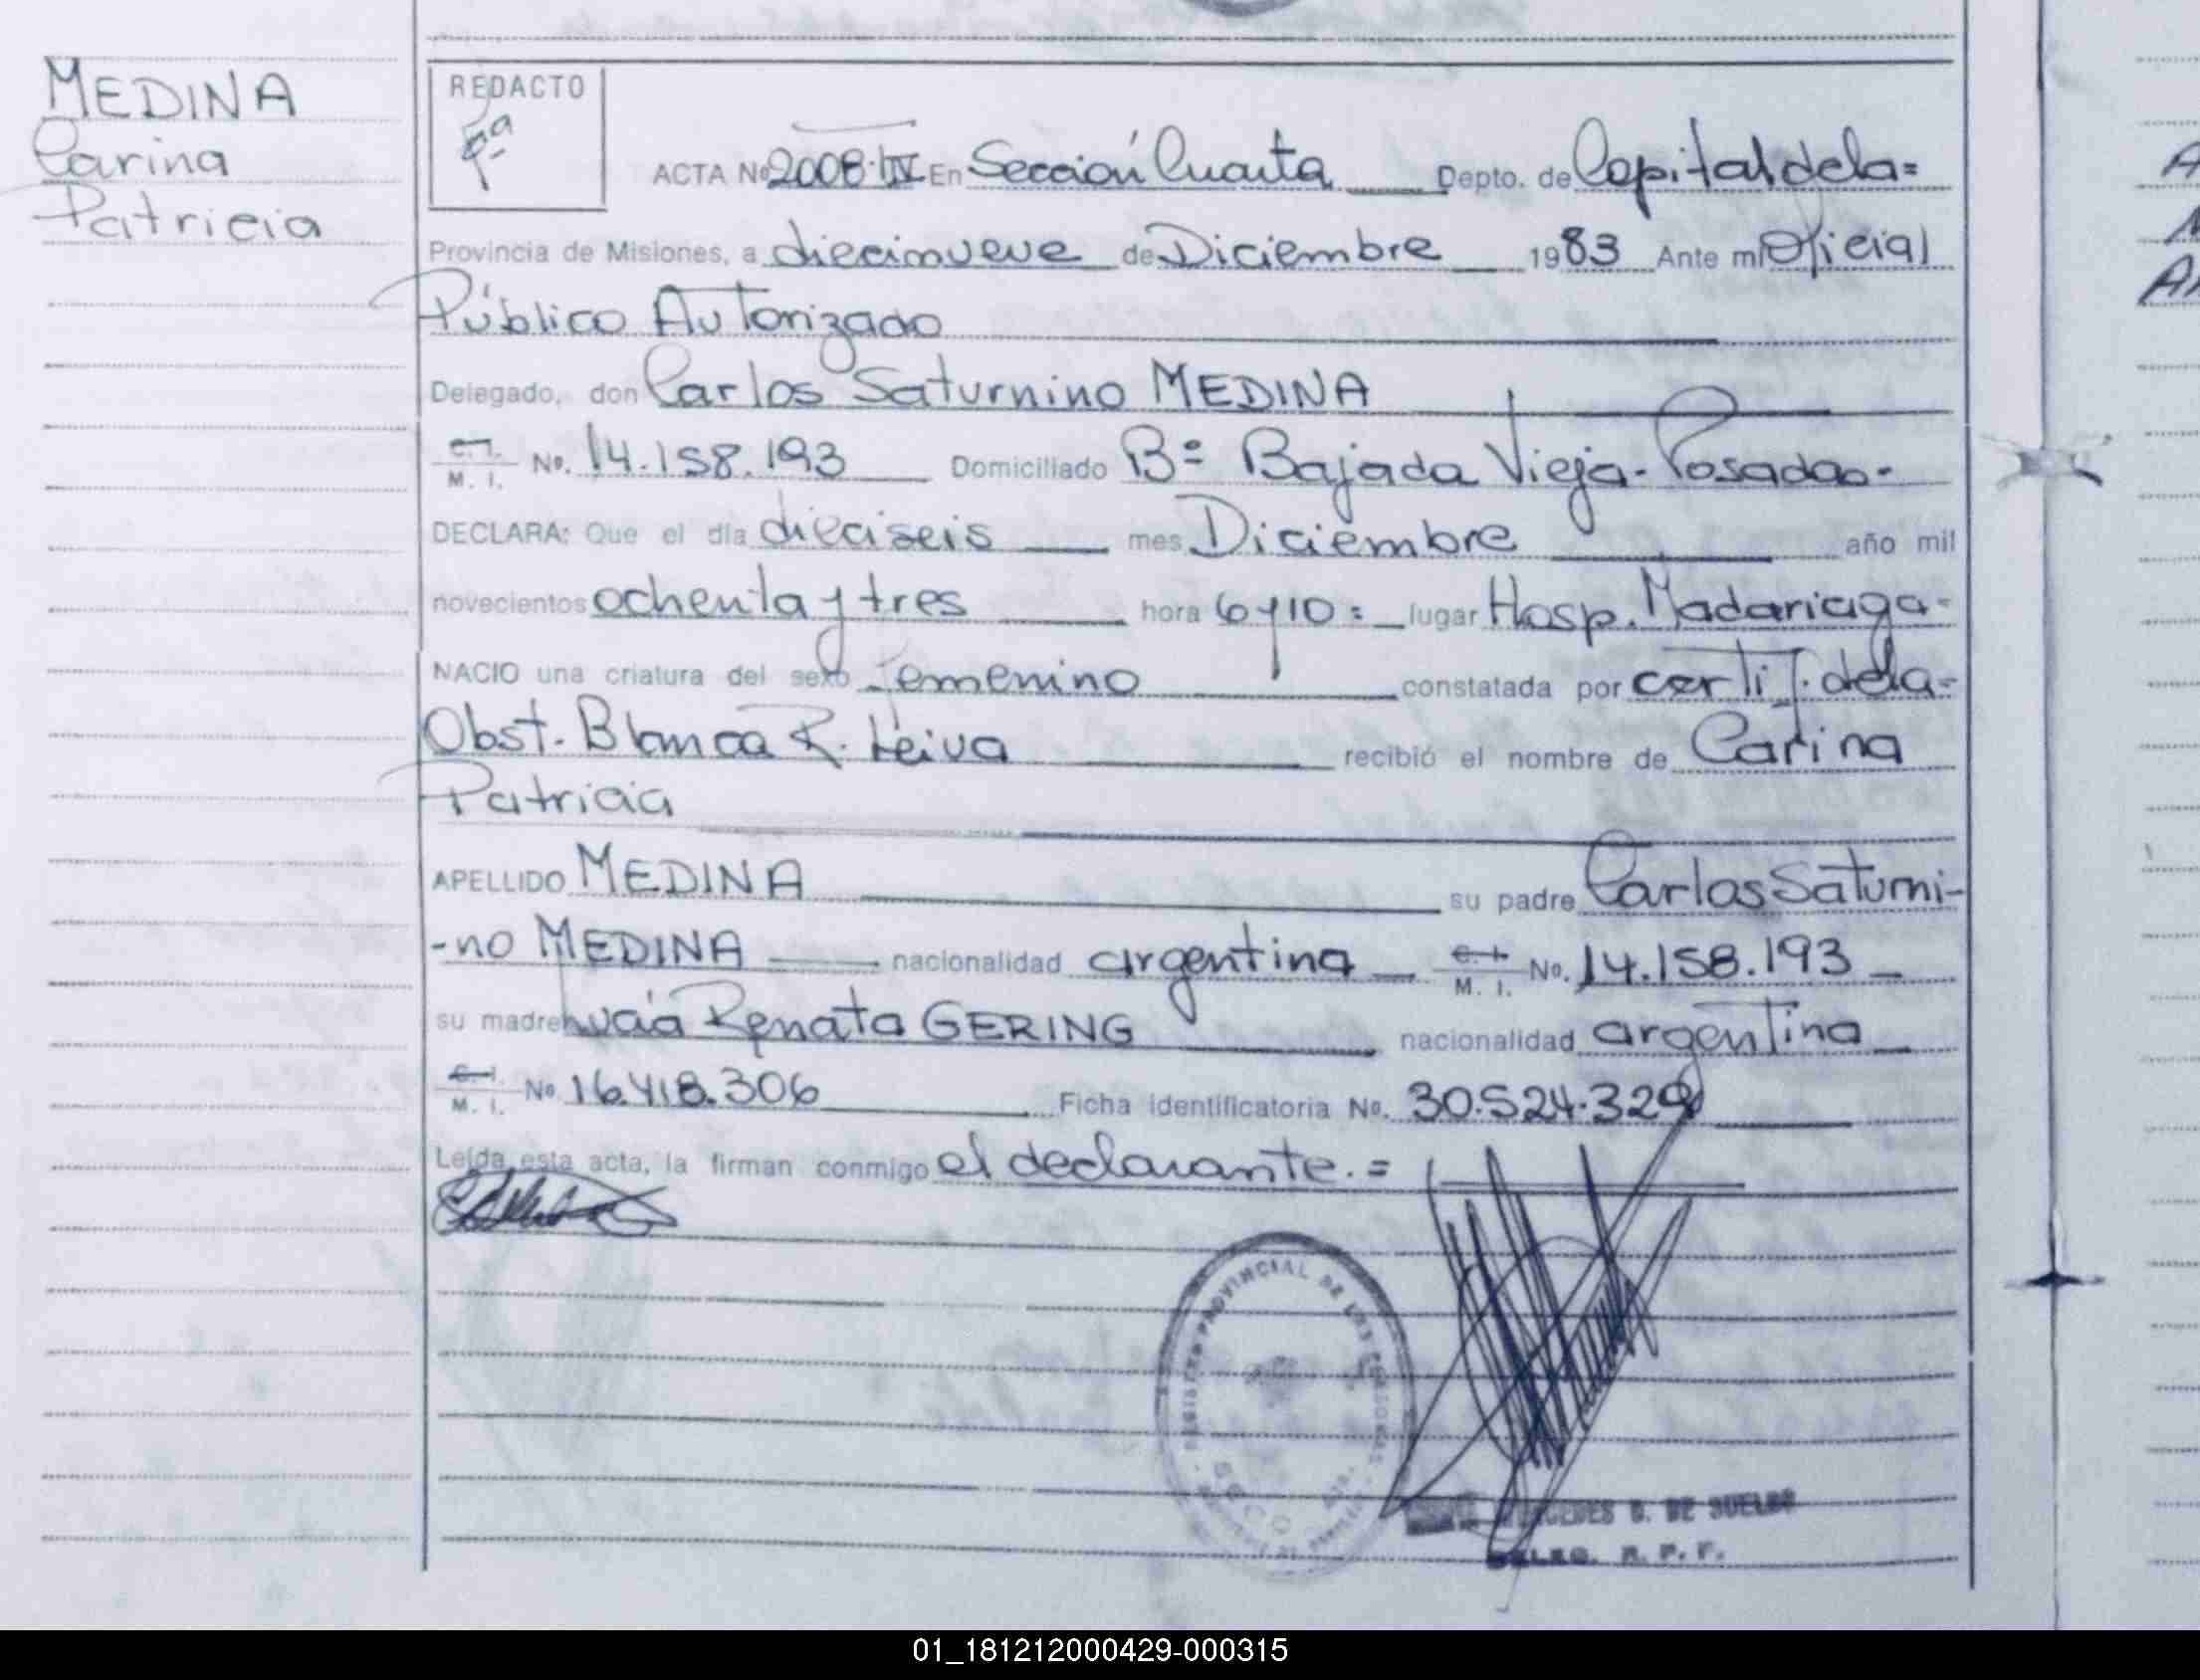 MEDINA
Carina
Patricia
REDACTO
ACTA Nº 2008·IV En Sección Cuarta Depto. de Capital de la=
Provincia de Misiones, a diecinueve de Diciembre 1983 Ante mi Oficial
Público Autorizado
Delegado, don Carlos Saturnino MEDINA
C. I.
M. I. Nº. 14.158.193 Domiciliado Bº Bajada Vieja- Posadas-
DECLARA: Que el día dieciseis mes Diciembre año mil
novecientos ochenta y tres hora 6 y 10= lugar Hosp. Madariaga-
NACIO una criatura del sexo femenino constatada por certif. de la-
Obst. Blanca R. Leiva recibió el nombre de Carina
Patricia
APELLIDO MEDINA su padre Carlos Saturni-
-no MEDINA nacionalidad argentina C. I.
M. I. Nº. 14.158.193
su madre Lucía Renata GERING nacionalidad argentina
C. I.
M. I. Nº 16.418.306 Ficha identificatoria Nº. 30.524.329
Leída esta acta, la firman conmigo el declarante.=
PROVINCIAL DE LAS PERSONAS
MERCEDES B. DE SUELDO
DELEG. R. P. F.
01_181212000429-000315